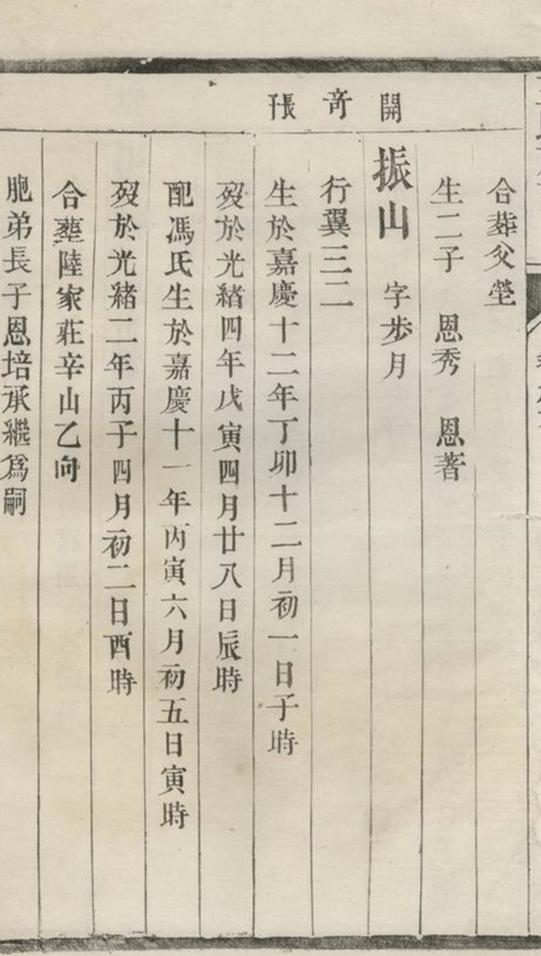 開奇張
合葬父塋
生二子　恩秀　恩著
振山　字步月
行翼三二
生於嘉慶十二年丁卯十二月初一日子時
歿於光緒四年戊寅四月廿八日辰時
配馮氏生於嘉慶十一年丙寅六月初五日寅時
歿於光緒二年丙子四月初二日酉時
合葬陸家莊辛山乙向
胞弟長子恩培承繼爲嗣